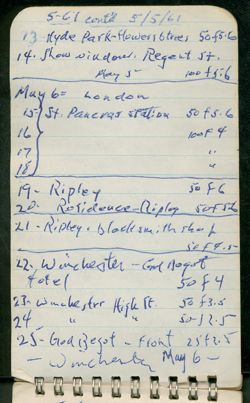 5-61 cont'd 5/5/61
13- Hyde Park- Flowers & trees 50 f 5.6
14. Show windows. Regent St.
May 5 100 f 5.6
May 6 = London
15- St. Pancras station 50 f 5.6
16 100 f 4
17 "
18 "
19 - Ripley 50 f 6
20- Residence-Ripley 50 f 5.6
21 - Ripley. blacksmith shop
50 f 4.5
22- Winchester - God Begot
Hotel 50 f 4
23- Winchester High St. 50 f 3.5
24 " " 50 f 2.5
25- God Begot - front 25 f 2.5
- Winchester May 6 -